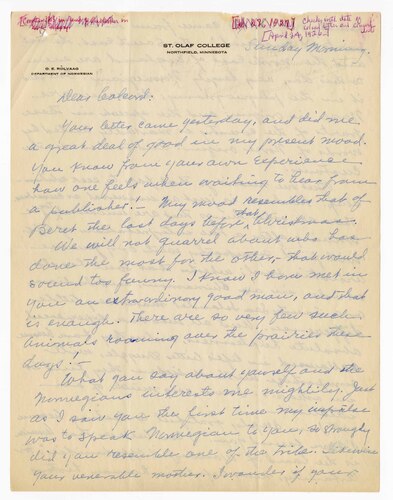 [Mar 27, 1927]
[April 24, 1926]
ST. OLAF COLLEGE
NORTHFIELD, MINNESOTA
Sunday Morning.
O. E. RÖLVAAG
DEPARTMENT OF NORWEGIAN
Dear Colcord:
Your letter came yesterday, and did me
a great deal of good in my present mood.
You know from your own experience
how one feels when waiting to hear from
a publisher! – My mood resembles that of
Beret the last days before that Christmas.
We will not quarrel about who has
done the most for the other, that would
sound too funny. I know I have met in
you an extraordinary good man, and that
is enough. There are so very few such
animals roaming over the prairies these
days! –
What you say about yourself and the
Norwegians interests me mightily. Just
as I saw you the first time my impulse
was to speak Norwegian to you, so strongly
did you resemble one of the tribe. Likewise
your venerable mother. I wonder if your